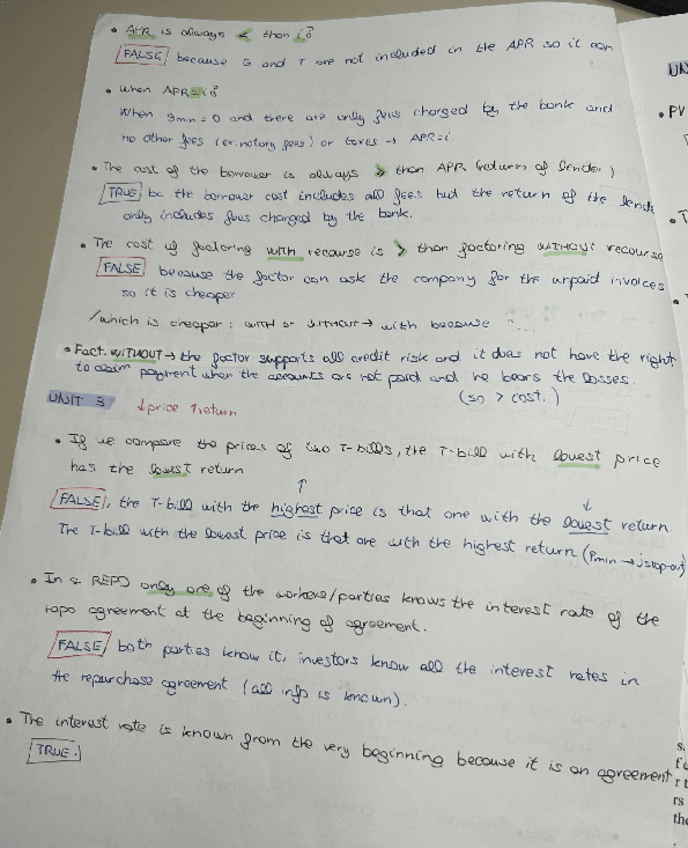 • APR is always < than i?
FALSE because G and T are not included in the APR so it can
• When APR = i?
When gmin = 0 and there are only fees charged by the bank and
no other fees (ex: notary fees) or taxes → APR = i
• The cost of the borrower is always > than APR (return of lender)
TRUE bc the borrower cost includes all fees but the return of the lende
only includes fees charged by the bank.
• The cost of factoring WITH recourse is > than factoring WITHOUT recourse
FALSE because the factor can ask the company for the unpaid invoices
so it is cheaper
/which is cheaper: WITH or WITHOUT → with because "...
• Fact. WITHOUT → the factor supports all credit risk and it does not have the right
to claim payment when the accounts are not paid and he bears the losses.
(so > cost.)
UNIT 3 ↓price ↑return
• If we compare the prices of two T-bills, the T-bill with lowest price
has the lowest return
FALSE, the T-bill with the highest price is that one with the lowest return.
The T-bill with the lowest price is that one with the highest return (Pmin → istop-out)
• In a REPO only one of the workers/parties knows the interest rate of the
repo agreement at the beginning of agreement.
FALSE, both parties know it, investors know all the interest rates in
the repurchase agreement (all info is known).
• The interest rate is known from the very beginning because it is an agreement
TRUE.
UN
• PV
s.
r t
rs
the